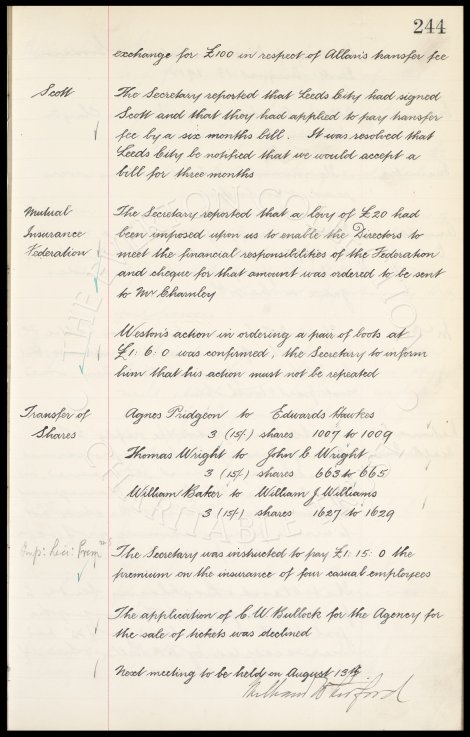 244
exchange for £100 in respect of Allan's transfer fee
Scott
The Secretary reported that Leeds City had signed
Scott and that they had applied to pay transfer
fee by a six months bill. It was resolved that
Leeds City be notified that we would accept a
bill for three months
Mutual
Insurance
Federation
The Secretary reported that a levy of £20 had
been imposed upon us to enable the Directors to
meet the financial responsibilities of the Federation
and cheque for that amount was ordered to be sent
to Mr Charnley
Weston's action in ordering a pair of boots at
£1: 6: 0 was confirmed, the Secretary to inform
him that his action must not be repeated
Transfer of
Shares
Agnes Pridgeon to Edwards Hawkes
3 (15/-) shares 1007 to 1009
Thomas Wright to John C Wright
3 (15/-) shares 663 to 665
William Baker to William J. Williams
3 (15/-) shares 1627 to 1629
The Secretary was instructed to pay £1: 15: 0 the
premium on the insurance of four casual employees
The application of C. W. Bullock for the Agency for
the sale of tickets was declined
Next meeting to be held on August 13th.